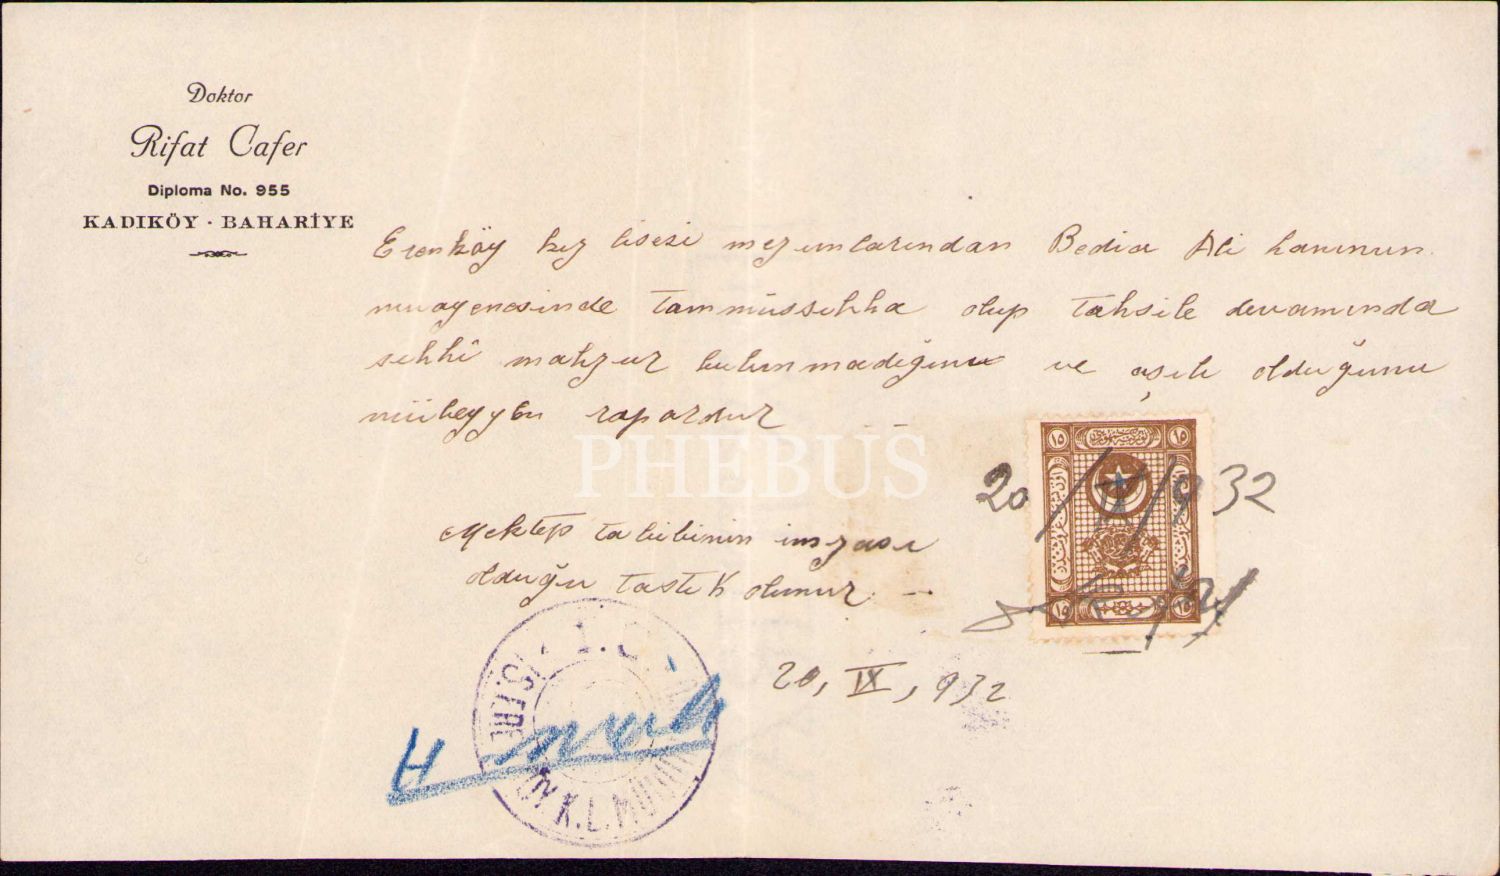 Doktor
Rifat Cafer
Diploma No. 955
KADIKÖY · BAHARİYE
Erenköy kız lisesi mezunlarından Bedia Ali hanımın
muayenesinde tammüssıhha olup tahsile devamında
sıhhî mahzur bulunmadığını ve aşılı olduğunu
mübeyyin rapordur
PHEBUS
20/IX/932
Mektep tabibinin imzası
olduğu tastik olunur.
20, IX, 932
K.L. MÜDÜR
١٥ ١٥
١٥ ١٥